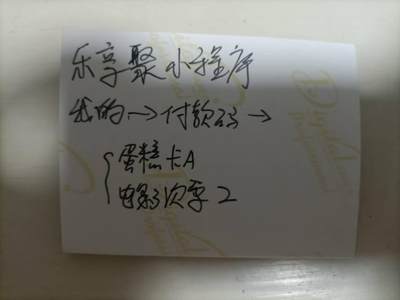 乐享聚小程序
我的→付款码→
蛋糕卡A
电影次季2